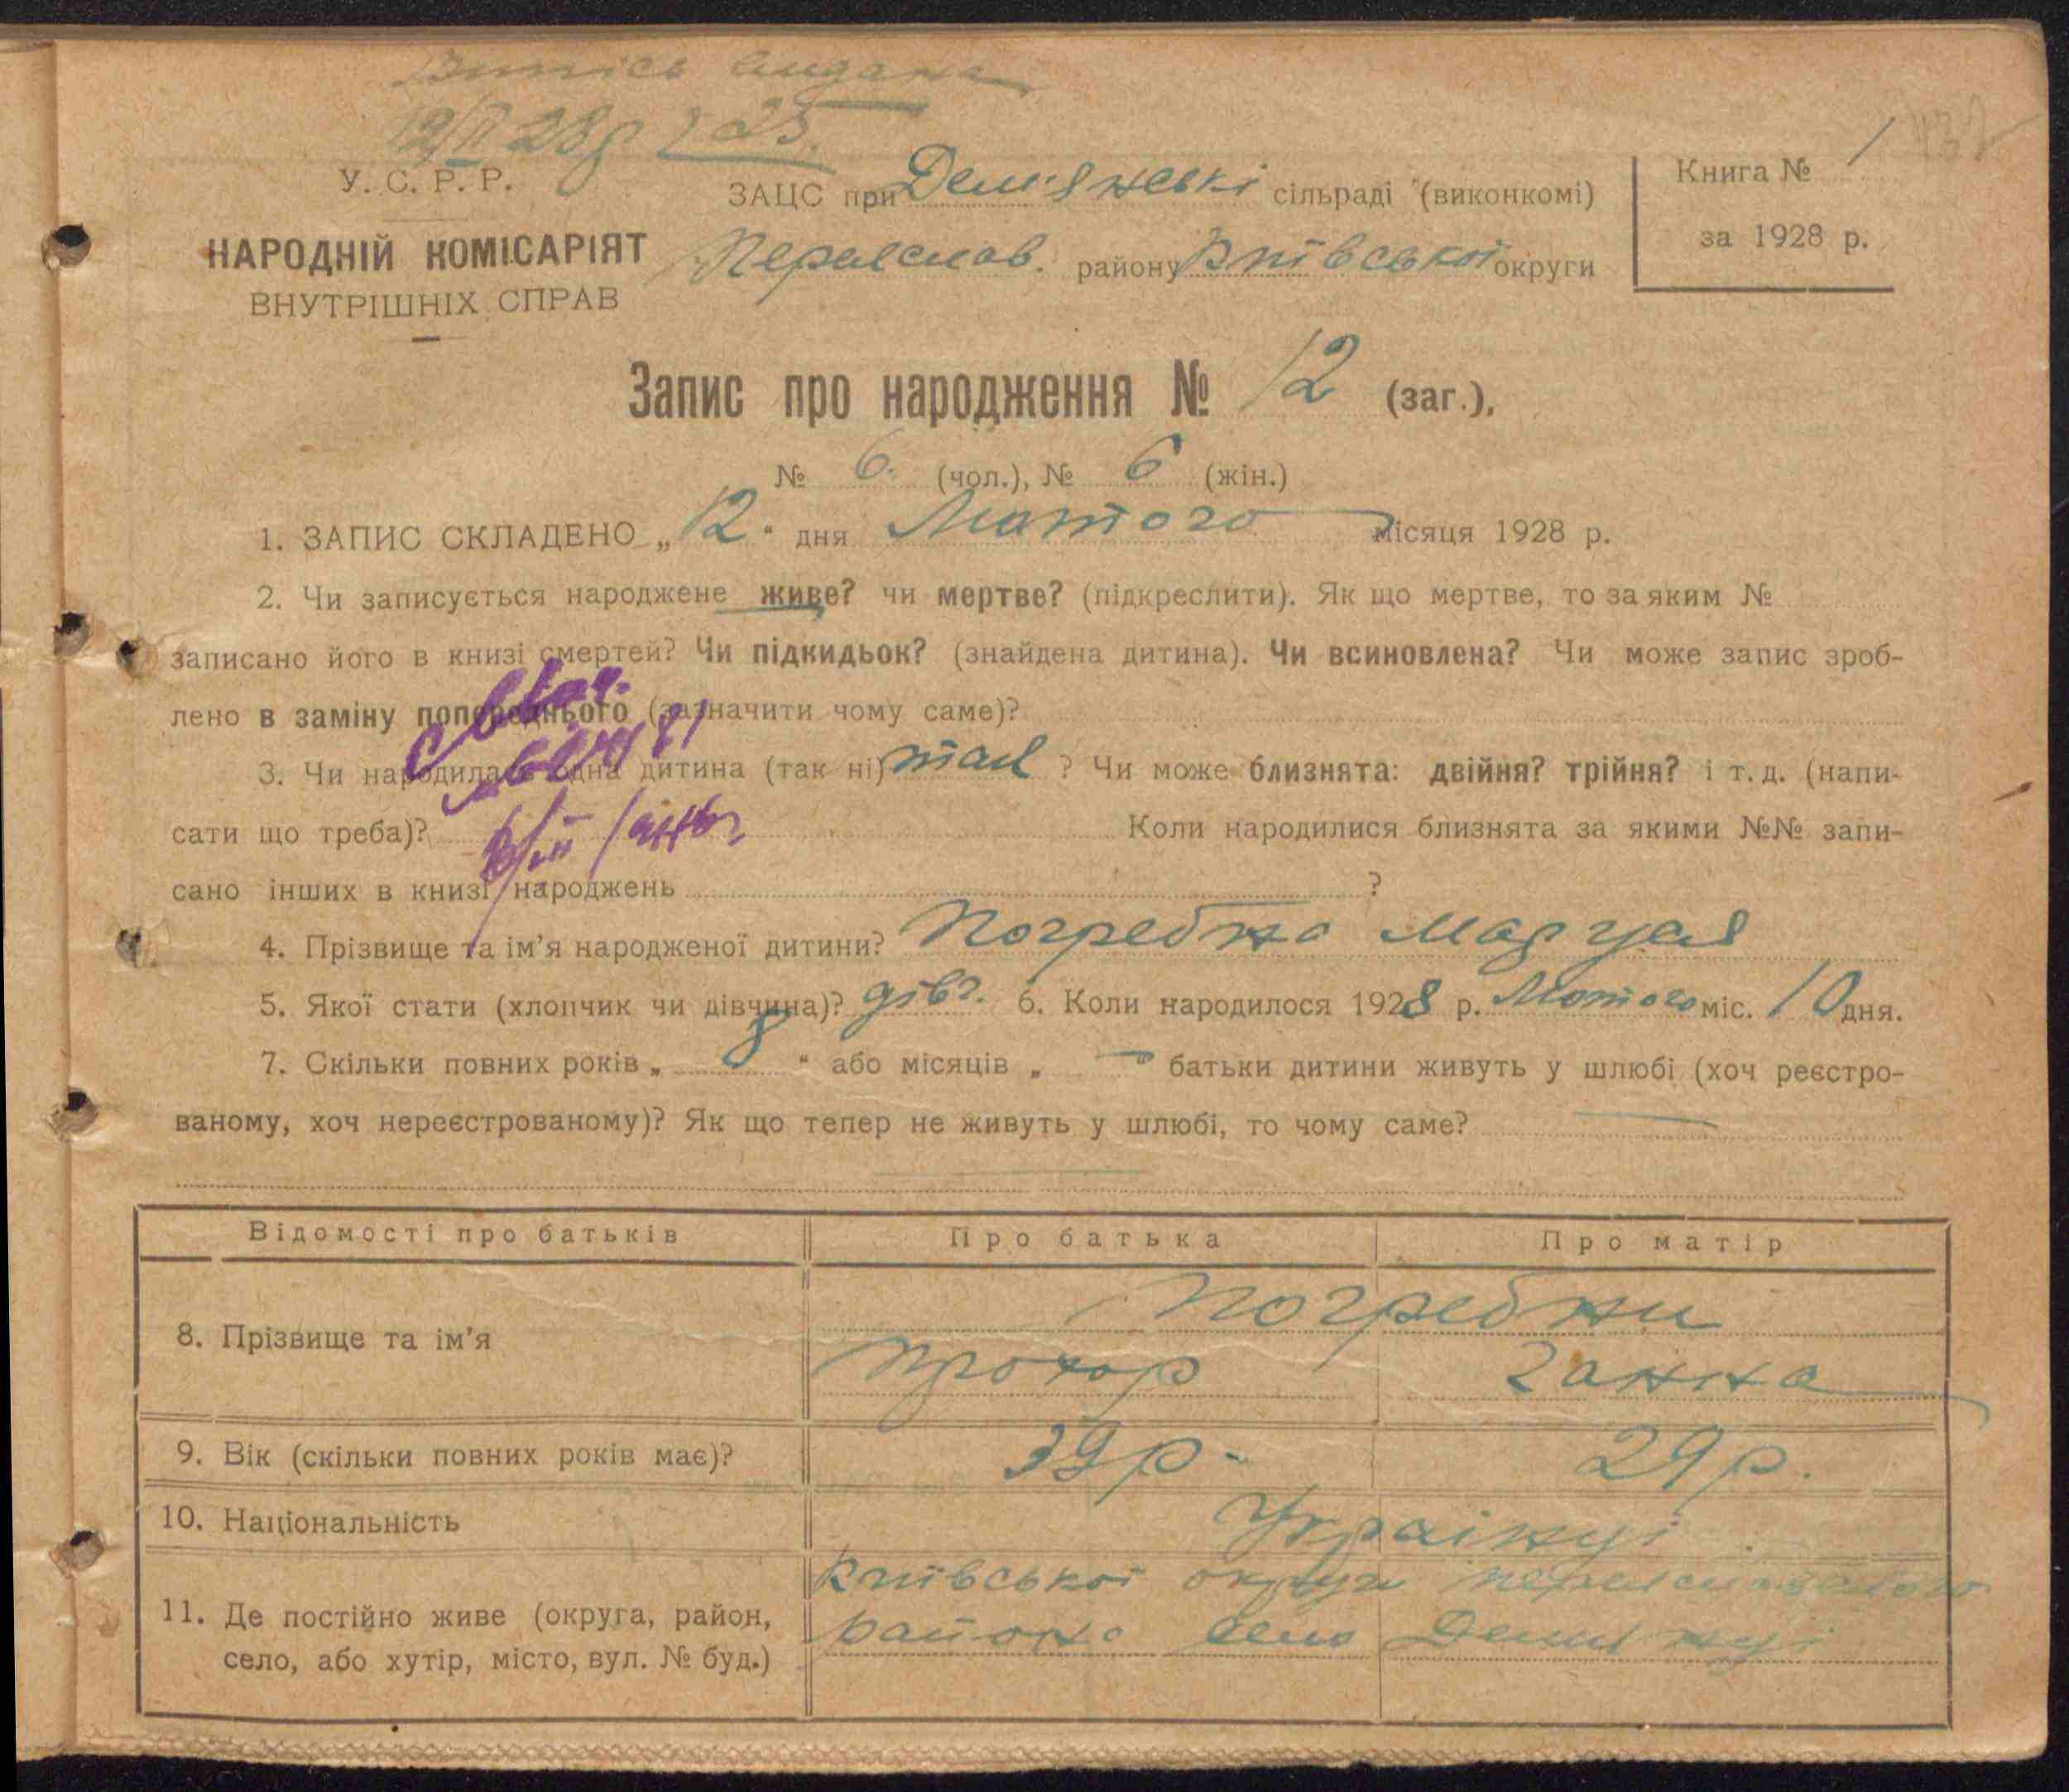 Випісь видана
12/II 28 р. 25.
У. С. Р. Р.
НАРОДНІЙ КОМІСАРІЯТ
ВНУТРІШНІХ СПРАВ
ЗАЦС при Дем'янські сільраді (виконкомі)
Переяслав. району Київської округи
Книга № 1
за 1928 р.
Запис про народження № 12 (заг.),
№ 6. (чол.), № 6 (жін.)
1. ЗАПИС СКЛАДЕНО „12“ дня Лютого місяця 1928 р.
2. Чи записується народжене живе? чи мертве? (підкреслити). Як що мертве, то за яким №
записано його в книзі смертей? Чи підкидьок? (знайдена дитина). Чи всиновлена? Чи може запис зроб-
лено в заміну попереднього (зазначити чому саме)?
3. Чи народилась одна дитина (так ні) так ? Чи може близнята: двійня? трійня? і т. д. (напи-
сати що треба)? Коли народилися близнята за якими №№ запи-
сано інших в книзі народжень ?
4. Прізвище та ім'я народженої дитини? Погребна Маруся
5. Якої стати (хлопчик чи дівчина)? дівч. 6. Коли народилося 1928 р. Лютого міс. 10 дня.
7. Скільки повних років „ 8 “ або місяців „ — “ батьки дитини живуть у шлюбі (хоч реєстро-
ваному, хоч нереєстрованому)? Як що тепер не живуть у шлюбі, то чому саме?
Відомості про батьків Про батька Про матір
8. Прізвище та ім'я Погребни
Прохор Ганна
9. Вік (скільки повних років має)? 39 р. 29 р.
10. Національність Українці
11. Де постійно живе (округа, район,
село, або хутір, місто, вул. № буд.)
Київської округи Переяславского
района село Демянці